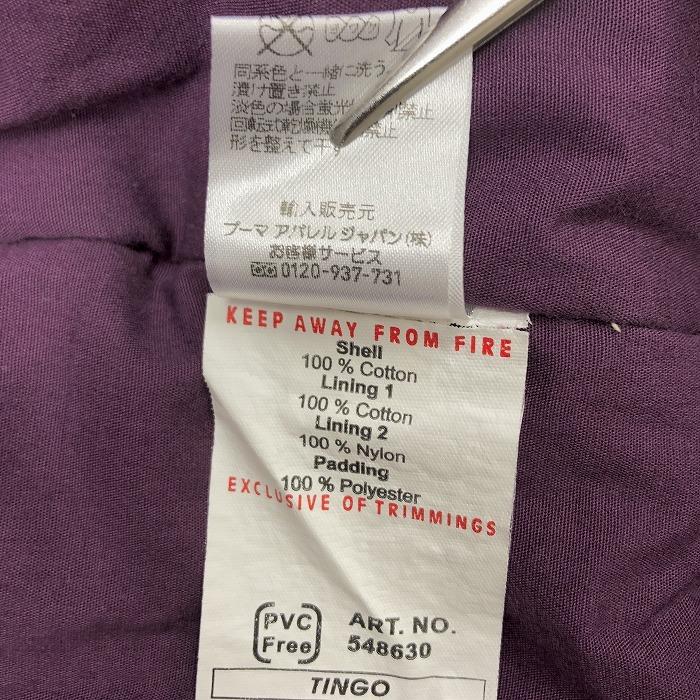 同系色と一緒に洗う
漬け置き禁止
淡色の場合蛍光 禁止
回転式乾燥機 禁止
形を整えて干
輸入販売元
プーマ アパレル ジャパン(株)
お客様サービス
0120-937-731
KEEP AWAY FROM FIRE
Shell
100 % Cotton
Lining 1
100 % Cotton
Lining 2
100 % Nylon
Padding
100 % Polyester
EXCLUSIVE OF TRIMMINGS
PVC Free
ART. NO.
548630
TINGO